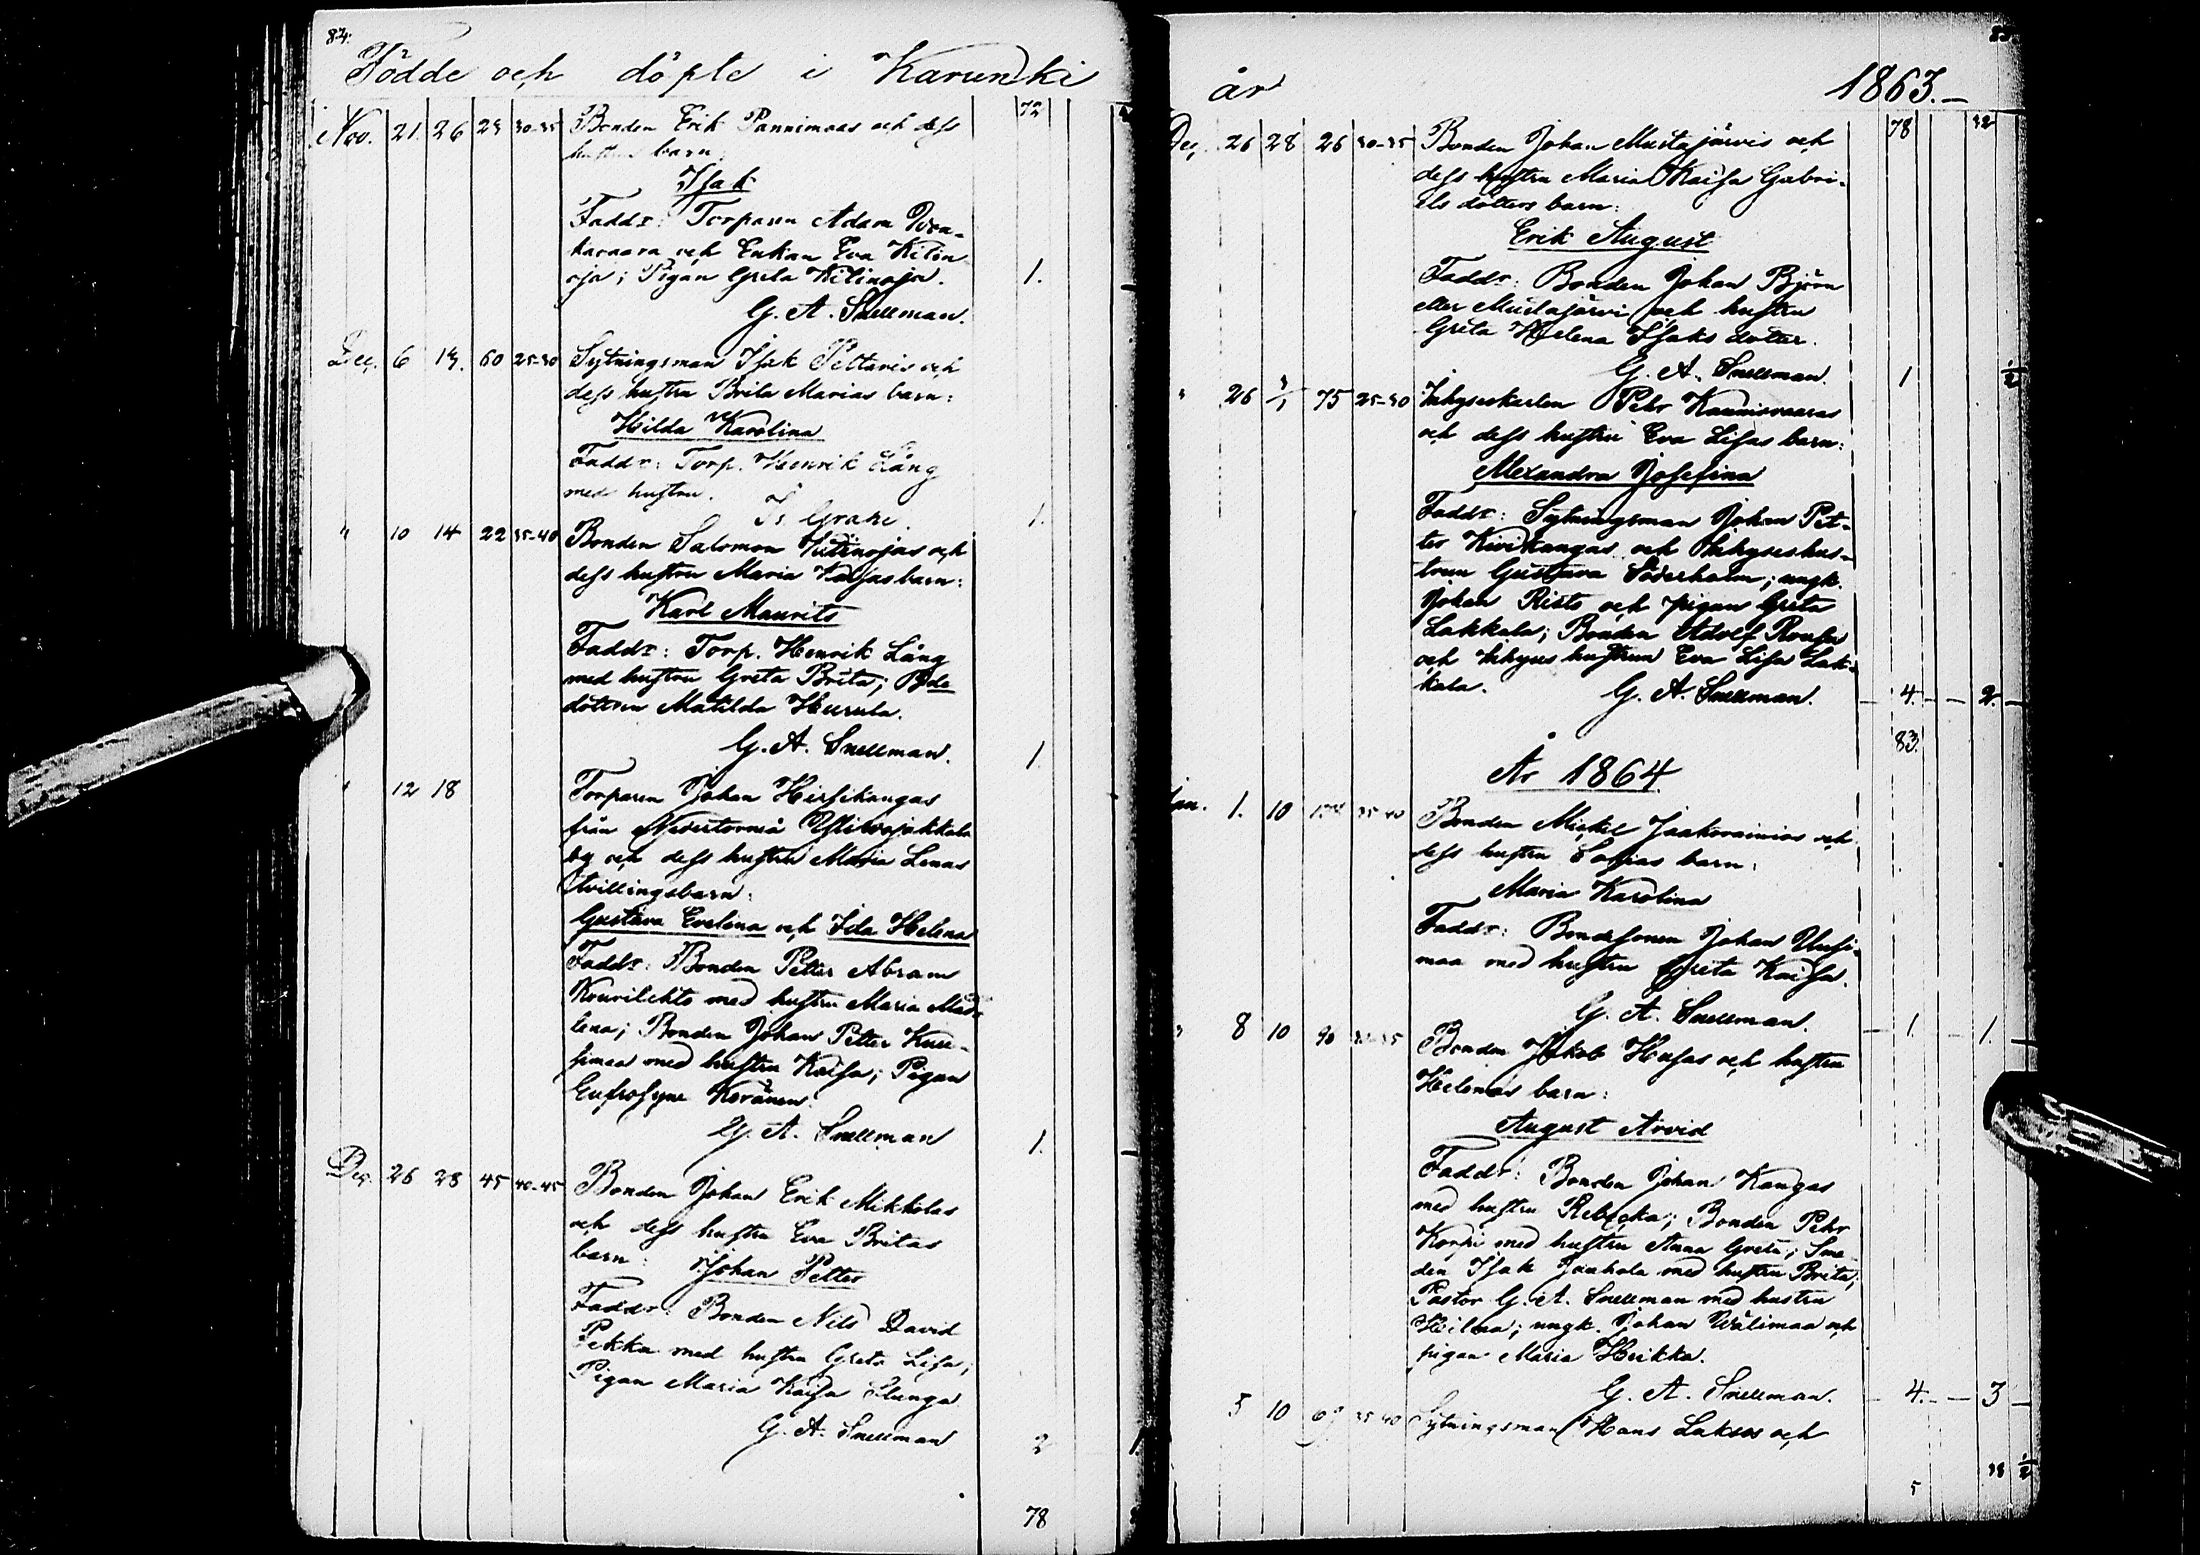 84.
Födde och döpte i Karunki
72
Nov. 21. 26 29 30-35 Bonden Erik Pannimaas och dess
hustrus barn:
Isak
Faddr: Torparen Adam
och Enkan Eva Kilin-
oja; Pigan Greta Kilinoja. 1.
G. A. Snellman.
Dec. 6 13. 60 25-30 Sytningsman Isak Pettaris och
dess hustru Brita Marias barn:
Hilda Karolina
Faddr: Torp. Henrik Lång
med hustru.
Is. Grape. 1.
" 10 14 22 35-40 Bonden Salomon Kilinojas och
dess hustru Maria Kaisas barn:
Karl Maurits
Faddr: Torp. Henrik Lång
med hustru Greta Brita; Bde
dottren Matilda Hurula.
G. A. Snellman. 1.
" 12 18 Torparen Johan Hirsikangas
från Nedertorneå
by och dess hustru Maria Lenas
tvillingsbarn:
Gustava Evelina och Ida Helena
Faddr: Bonden Petter Abram
Kourilehto med hustru Maria Mad-
lena; Bonden Johan Petter Kuu-
simaa med hustru Kaisa; Pigan
Eufrosyne Keränen.
G. A. Snellman 1.
Dec. 26 28 45 40-45 Bonden Johan Erik Mikkolas
och dess hustru Eva Britas
barn: Johan Petter
Faddr: Bonden Nils David
Pekka med hustru Greta Lisa;
Pigan Maria Kaisa Slunga
G. A. Snellman 2
78
år 1863.-
78 32
Dec. 26 28 26 30-35 Bonden Johan Mustajärvis och
dess hustru Maria Kaisa Gabri-
els dotters barn:
Erik August
Faddr: Bonden Johan Björn
eller Mustajärvi och hustru
Greta Helena Isaks dotter.
G. A. Snellman. 1 1/2
" 26 3/1 75 25-30 Inhyseskarlen Pehr Kaunisvaaras
och dess hustru Eva Lisas barn:
Alexandra Josefina
Faddr: Sytningsman Johan Pet-
ter Kivikangas och Inhyseshus-
trun Gustava Söderholm; ungk.
Johan Risto och pigan Greta
Lakkala; Bonden Adolf Rousa
och Inhyses hustrun Eva Lisa Lak-
kala. G. A. Snellman. 4. - 2.
83.
År 1864.
Jan. 1. 10 35-40 Bonden Mickel Jaakovainios och
dess hustru Sofias barn:
Maria Karolina
Faddr: Bondesonen Johan Uusi-
maa med hustru Greta Kaisa.
G. A. Snellman. 1. - 1.
" 8 10 90 Bonden Jakob Husas och hustru
Helenas barn:
August Arvid
Faddr: Bonden Johan Kangas
med hustru Rebecka; Bonden Pehr
Korpi med hustru Anna Greta; Sme-
den Isak Jauhola med hustru Brita;
Pastor G. A. Snellman med hustru
Hilma; ungk. Johan Wälimaa och
pigan Maria Heikka.
G. A. Snellman. 4. - 3
5 10 69 35-40 Sytningsman Hans Laksos och
38 1/2
5